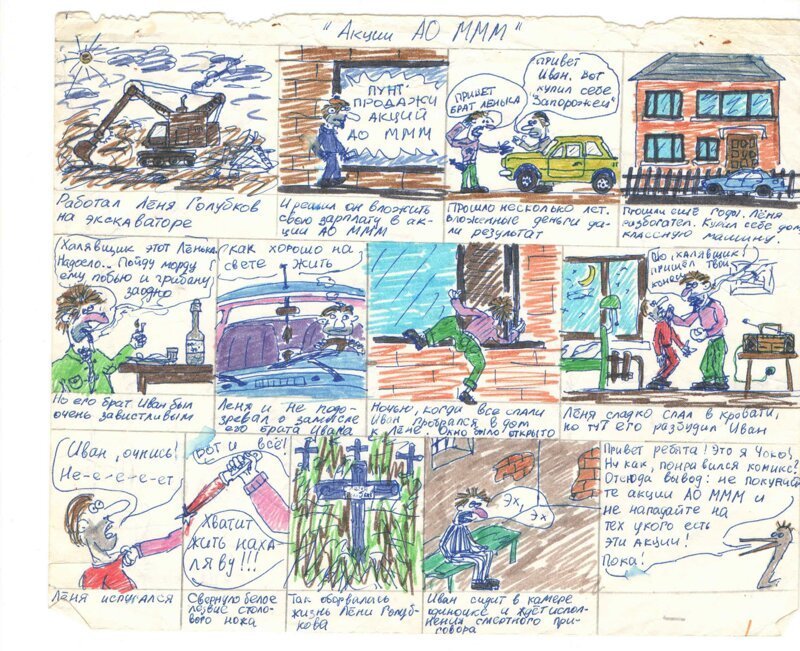 "Акции АО МММ"
Работал Лёня Голубков
на экскаваторе
ПУНТ
ПРОДАЖИ
АКЦИЙ
АО МММ
И решил он вложить
свою зарплату в ак-
ции АО МММ
ПРИВЕТ
БРАТ ЛЁНЬКА
ПРИВЕТ
Иван. Вот
купил себе
"Запорожец"
Прошло несколько лет.
вложенные деньги да-
ли результат
Прошли ещё годы. Лёня
разбогател. Купил себе дом,
классную машину.
Халявщик этот Лёнька
Надоело... Пойду морду
ему побью и грабану
заодно
Но его брат Иван был
очень завистливым
как хорошо на
свете жить
Лёня и не подо-
зревал о замысле
его брата Ивана
Ночью, когда все спали
Иван пробрался в дом
к Лёне. Окно было открыто
халявщик!
пришёл твой
конец
Лёня сладко спал в кровати,
но тут его разбудил Иван
Иван, очнись!
Не-е-е-е-ет
Лёня испугался
Вот и всё!
Хватит
жить наха
ляву!!!
Свернуло белое
лезвие столо-
вого ножа
Так оборвалась
жизнь Лёни Голуб-
кова
Эх
Эх
Иван сидит в камере
одиночке и ждёт испол-
нения смертного при-
говора
Привет ребята! Это я Чоко!
Ну как, понравился комикс?
Отсюда вывод: не покупай-
те акции АО МММ и
не нападайте на
тех у кого есть
эти акции!
Пока!